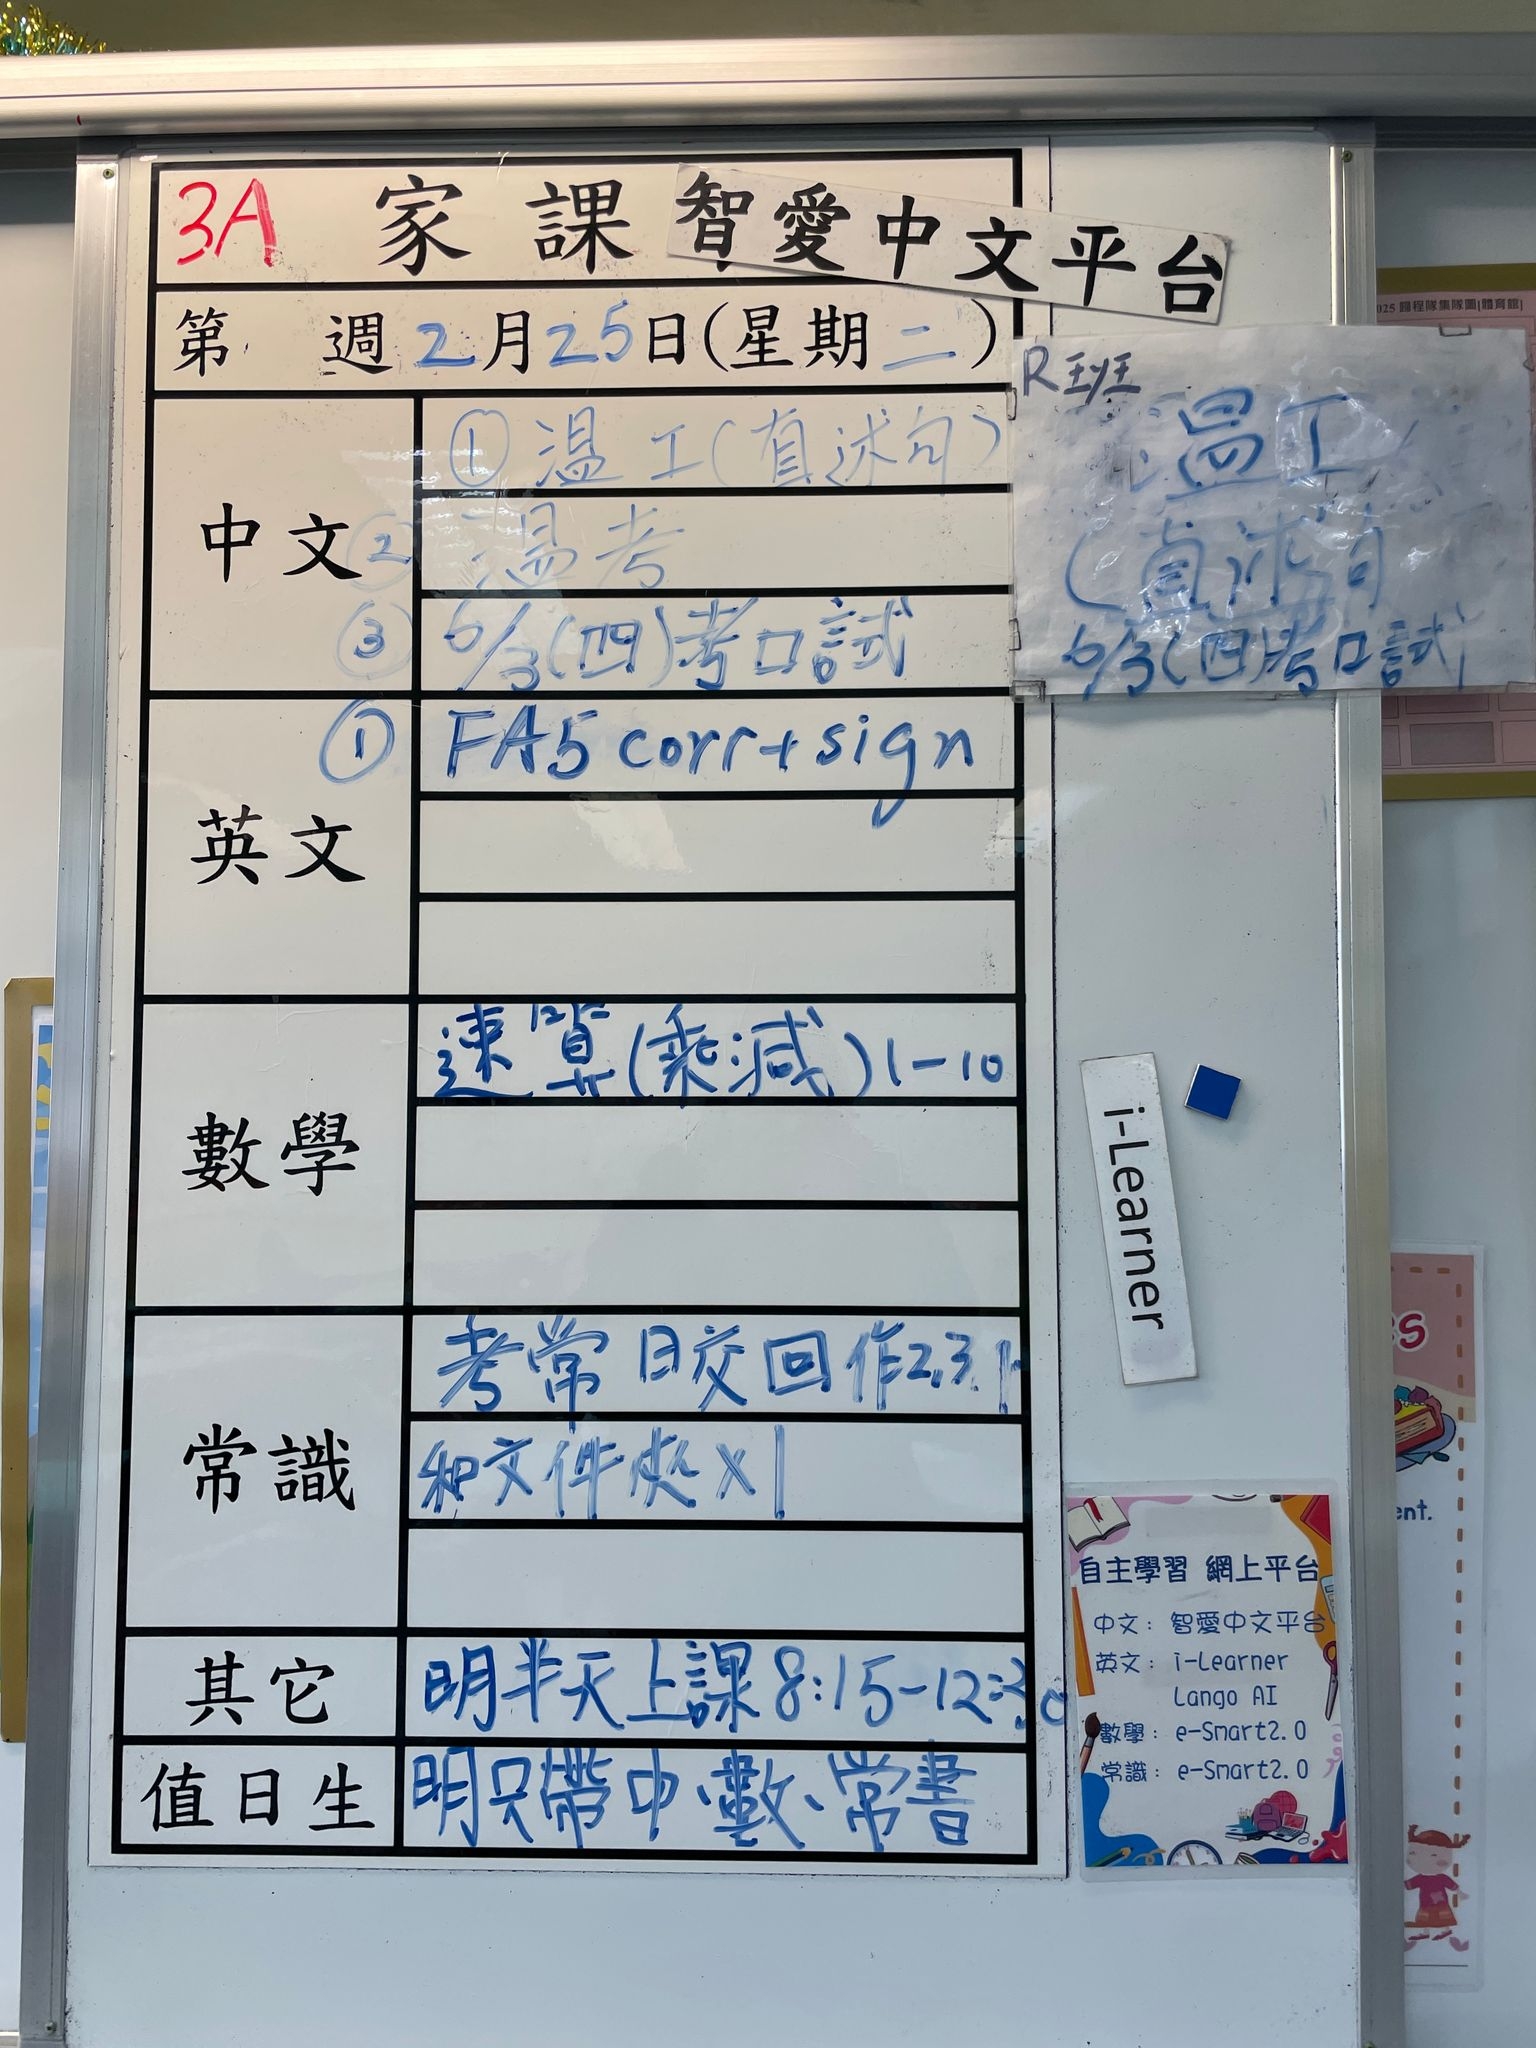 3A 家課 智愛中文平台
第 週 2月25日(星期二)
中文
① 温工(直述句)
② 温考
③ 6/3(四)考口試
R班
温工
(直述句
6/3(四)考口試
英文
① FA5 corr+sign
數學
速算(乘減)1-10
常識
考常日交回作2,3.
和文件夾x1
其它
明半天上課8:15-12:30
值日生
明只帶中、數、常書
i-Learner
自主學習 網上平台
中文：智愛中文平台
英文：i-Learner
Lango AI
數學：e-Smart2.0
常識：e-Smart2.0
025 歸程隊集隊圖[體育館]
ent.